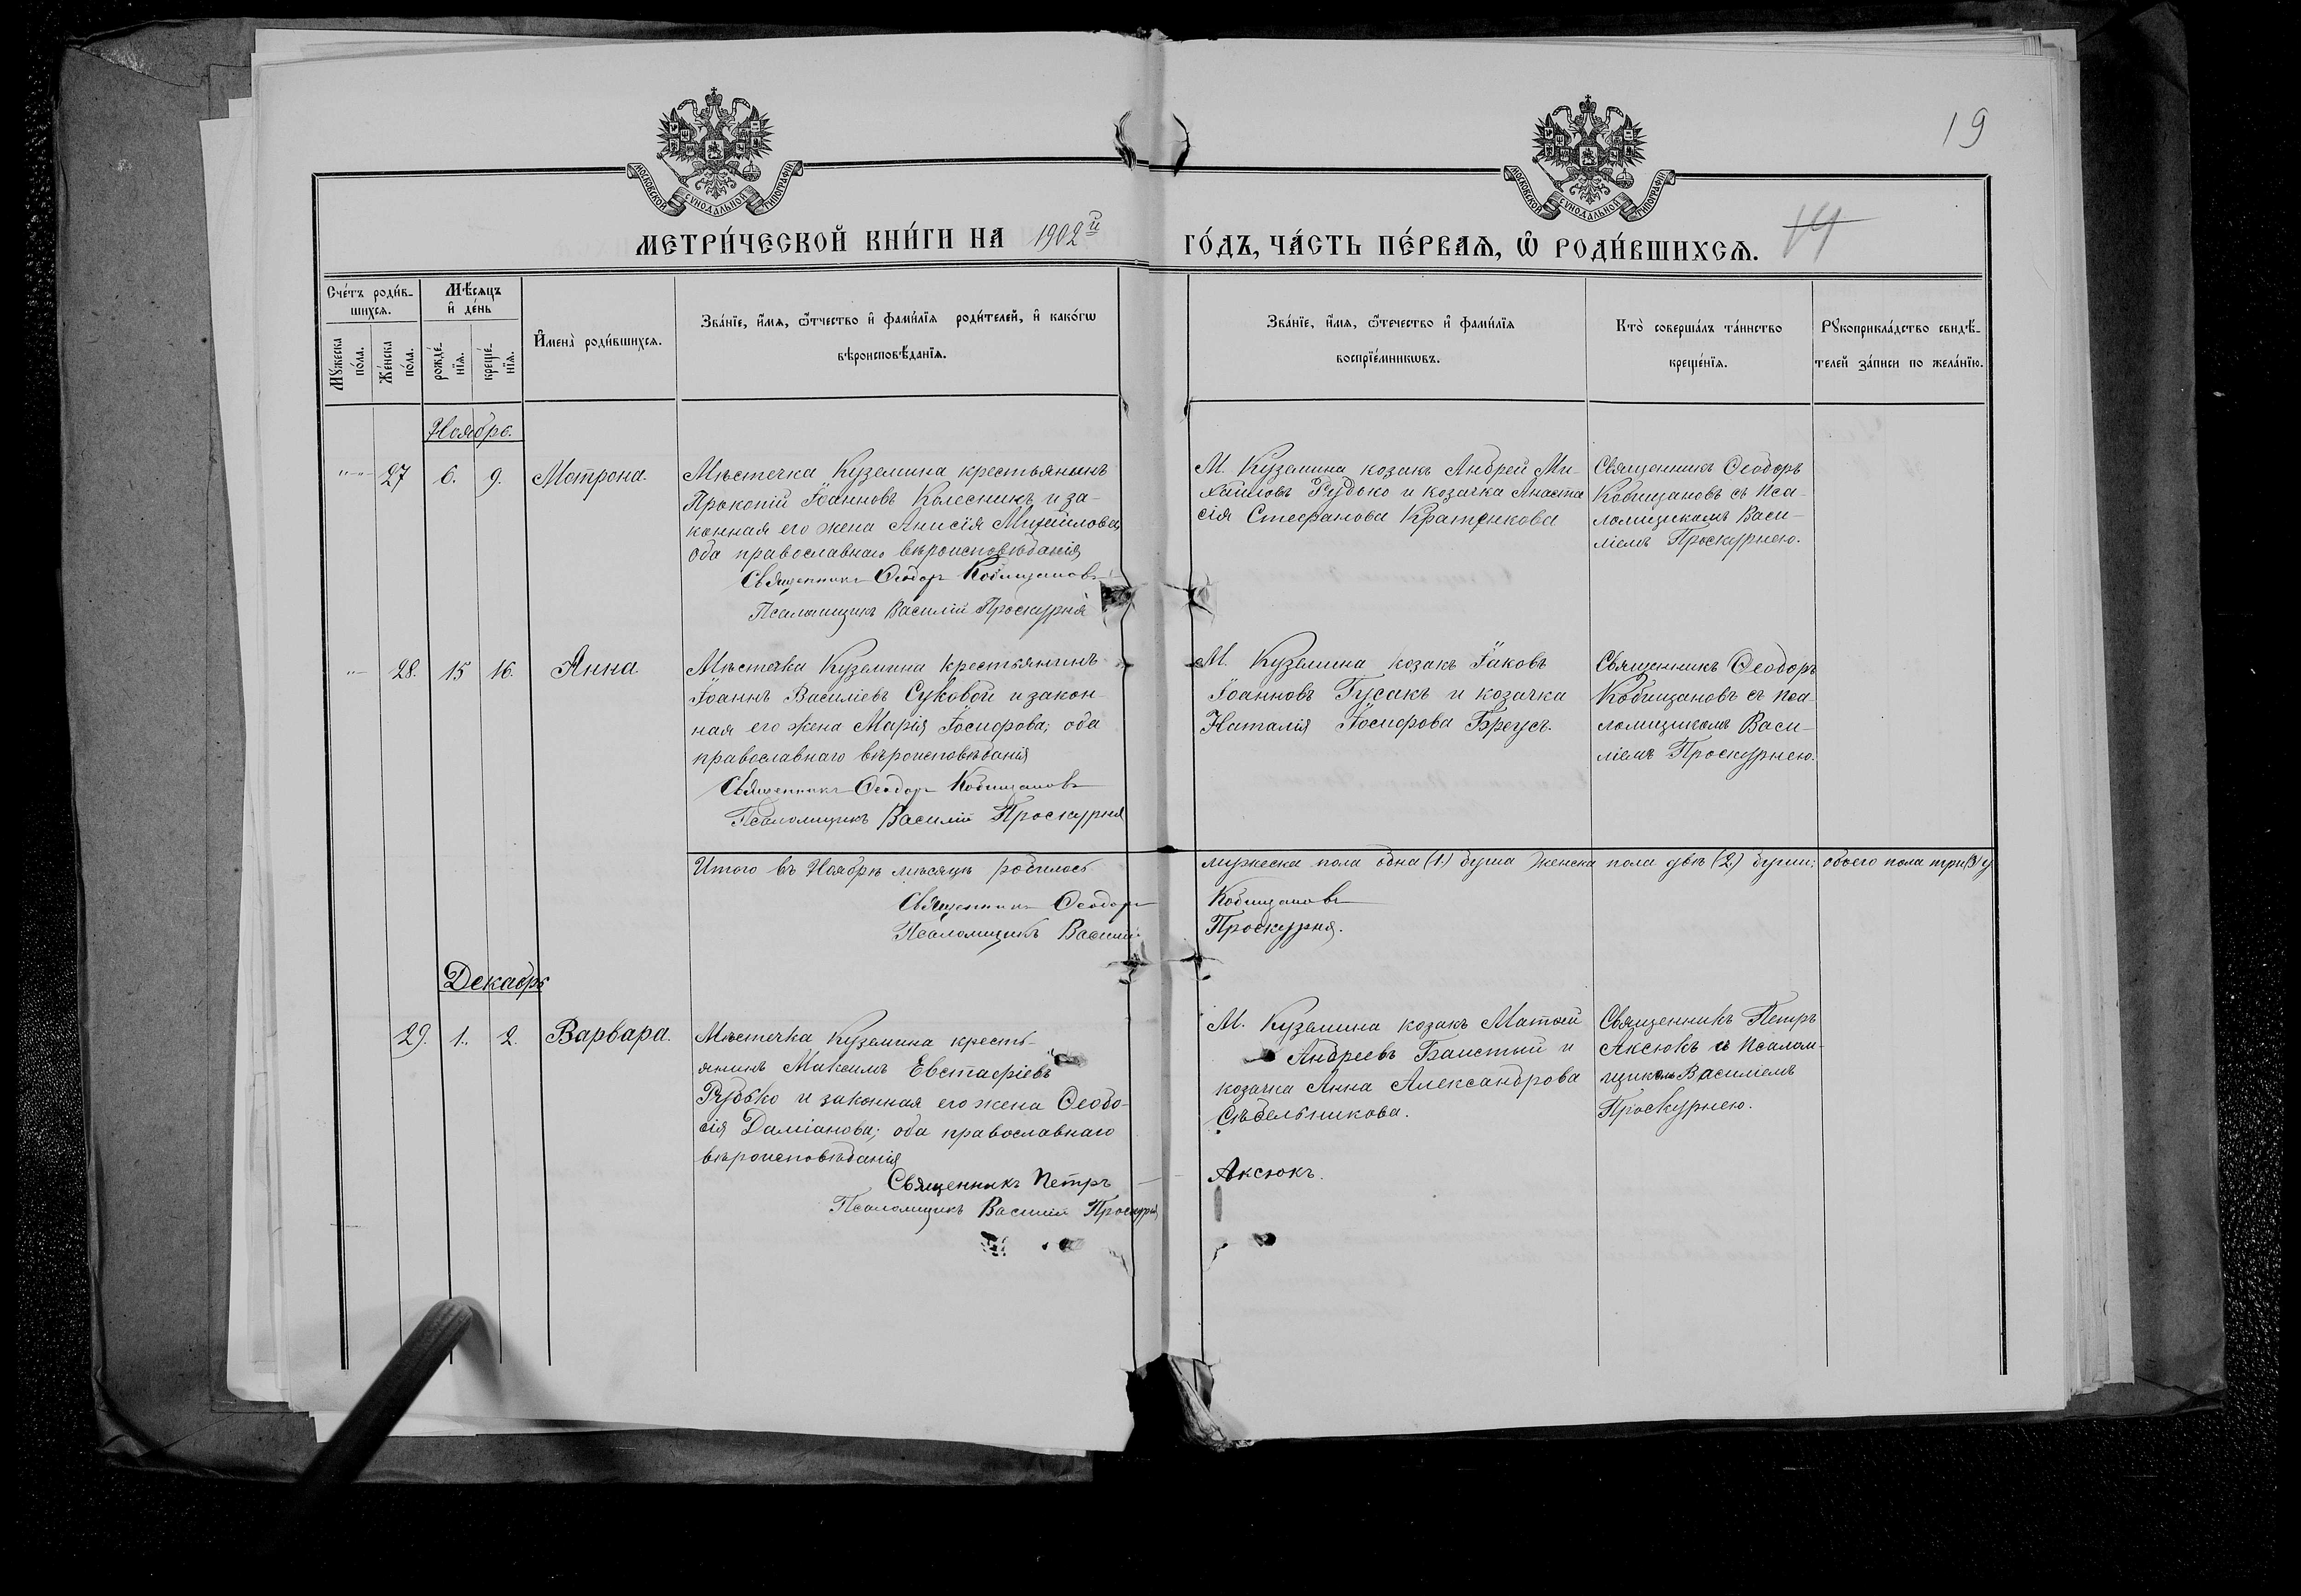 19
МОСКОВСКОЙ СУНОДАЛЬНОЙ ТИПОГРАФІИ
МОСКОВСКОЙ СУНОДАЛЬНОЙ ТИПОГРАФІИ
МЕТРИ́ЧЕСКОЙ КНИ́ГИ НА 1902й ГО́ДЪ, ЧА́СТЬ ПЕ́РВАѦ, Ѡ РОДИ́ВШИХСѦ.
Сче́тъ роди́в-
шихсѧ.
Мѣ́сѧцъ
и҆ де́нь
Мꙋ́жеска
по́ла.
Же́нска
по́ла.
рожде́-
нїѧ.
креще́-
нїѧ.
И҆мена̀ роди́вшихсѧ.
Зва́нїе, и҆́мѧ, ѻ҆́тчество и҆ фами́лїѧ роди́телей, и҆ како́гѡ
вѣроисповѣ́данїѧ.
Зва́нїе, и҆́мѧ, ѻ҆́течество и҆ фами́лїѧ
воспрїе́мникѡвъ.
Кто̀ соверша́лъ та́инство
креще́нїѧ.
Рꙋкоприкла́дство свидѣ́-
телей за́писи по жела́нїю.
Ноябрь.
27 6. 9. Мотрона.
Мѣстечка Куземина крестьянинъ
Прокопій Іоанновъ Колесникъ и за-
конная его жена Анисія Михаилова,
оба православнаго вѣроисповѣданія
Священникъ Ѳеодоръ Кобищановъ
Псаломщикъ Василій Проскурня
М. Куземина козакъ Андрей Ми-
хаиловъ Рудько и козачка Анаста
сія Стефанова
Священникъ Ѳеодоръ
Кобищановъ съ пса-
ломщикомъ Васи-
ліемъ Проскурнею.
28. 15 16. Анна
Мѣстечка Куземина крестьянинъ
Іоаннъ Василіевъ Суковой и закон-
ная его жена Марія Іосифова; оба
православнаго вѣроисповѣданія
Священникъ Ѳеодоръ Кобищановъ
Псаломщикъ Василій Проскурня
М. Куземина козакъ Іаковъ
Іоанновъ Гусакъ и козачка
Наталія Іосифова Бреусъ.
Священникъ Ѳеодоръ
Кобищановъ съ пса-
ломщикомъ Васи-
ліемъ Проскурнею.
Итого въ Ноябрѣ мѣсяцѣ родилось мужеска пола одна (1) душа женска пола двѣ (2) души; обоего пола три (3) д
Священникъ Ѳеодоръ Кобищановъ
Псаломщикъ Василій Проскурня.
Декабрь
29. 1. 2. Варвара.
Мѣстечка Куземина кресть-
янинъ Максимъ Евстафіевъ
Рудько и законная его жена Ѳеодо-
сія Даміанова; оба православнаго
вѣроисповѣданія
Священникъ Петръ Аксюкъ.
Псаломщикъ Василій Проскурня
М. Куземина козакъ Матѳей
Андреевъ и
козачка Анна Александрова
Сѣдельникова.
Священникъ Петръ
Аксюкъ съ псалом-
щикомъ Василіемъ
Проскурнею.